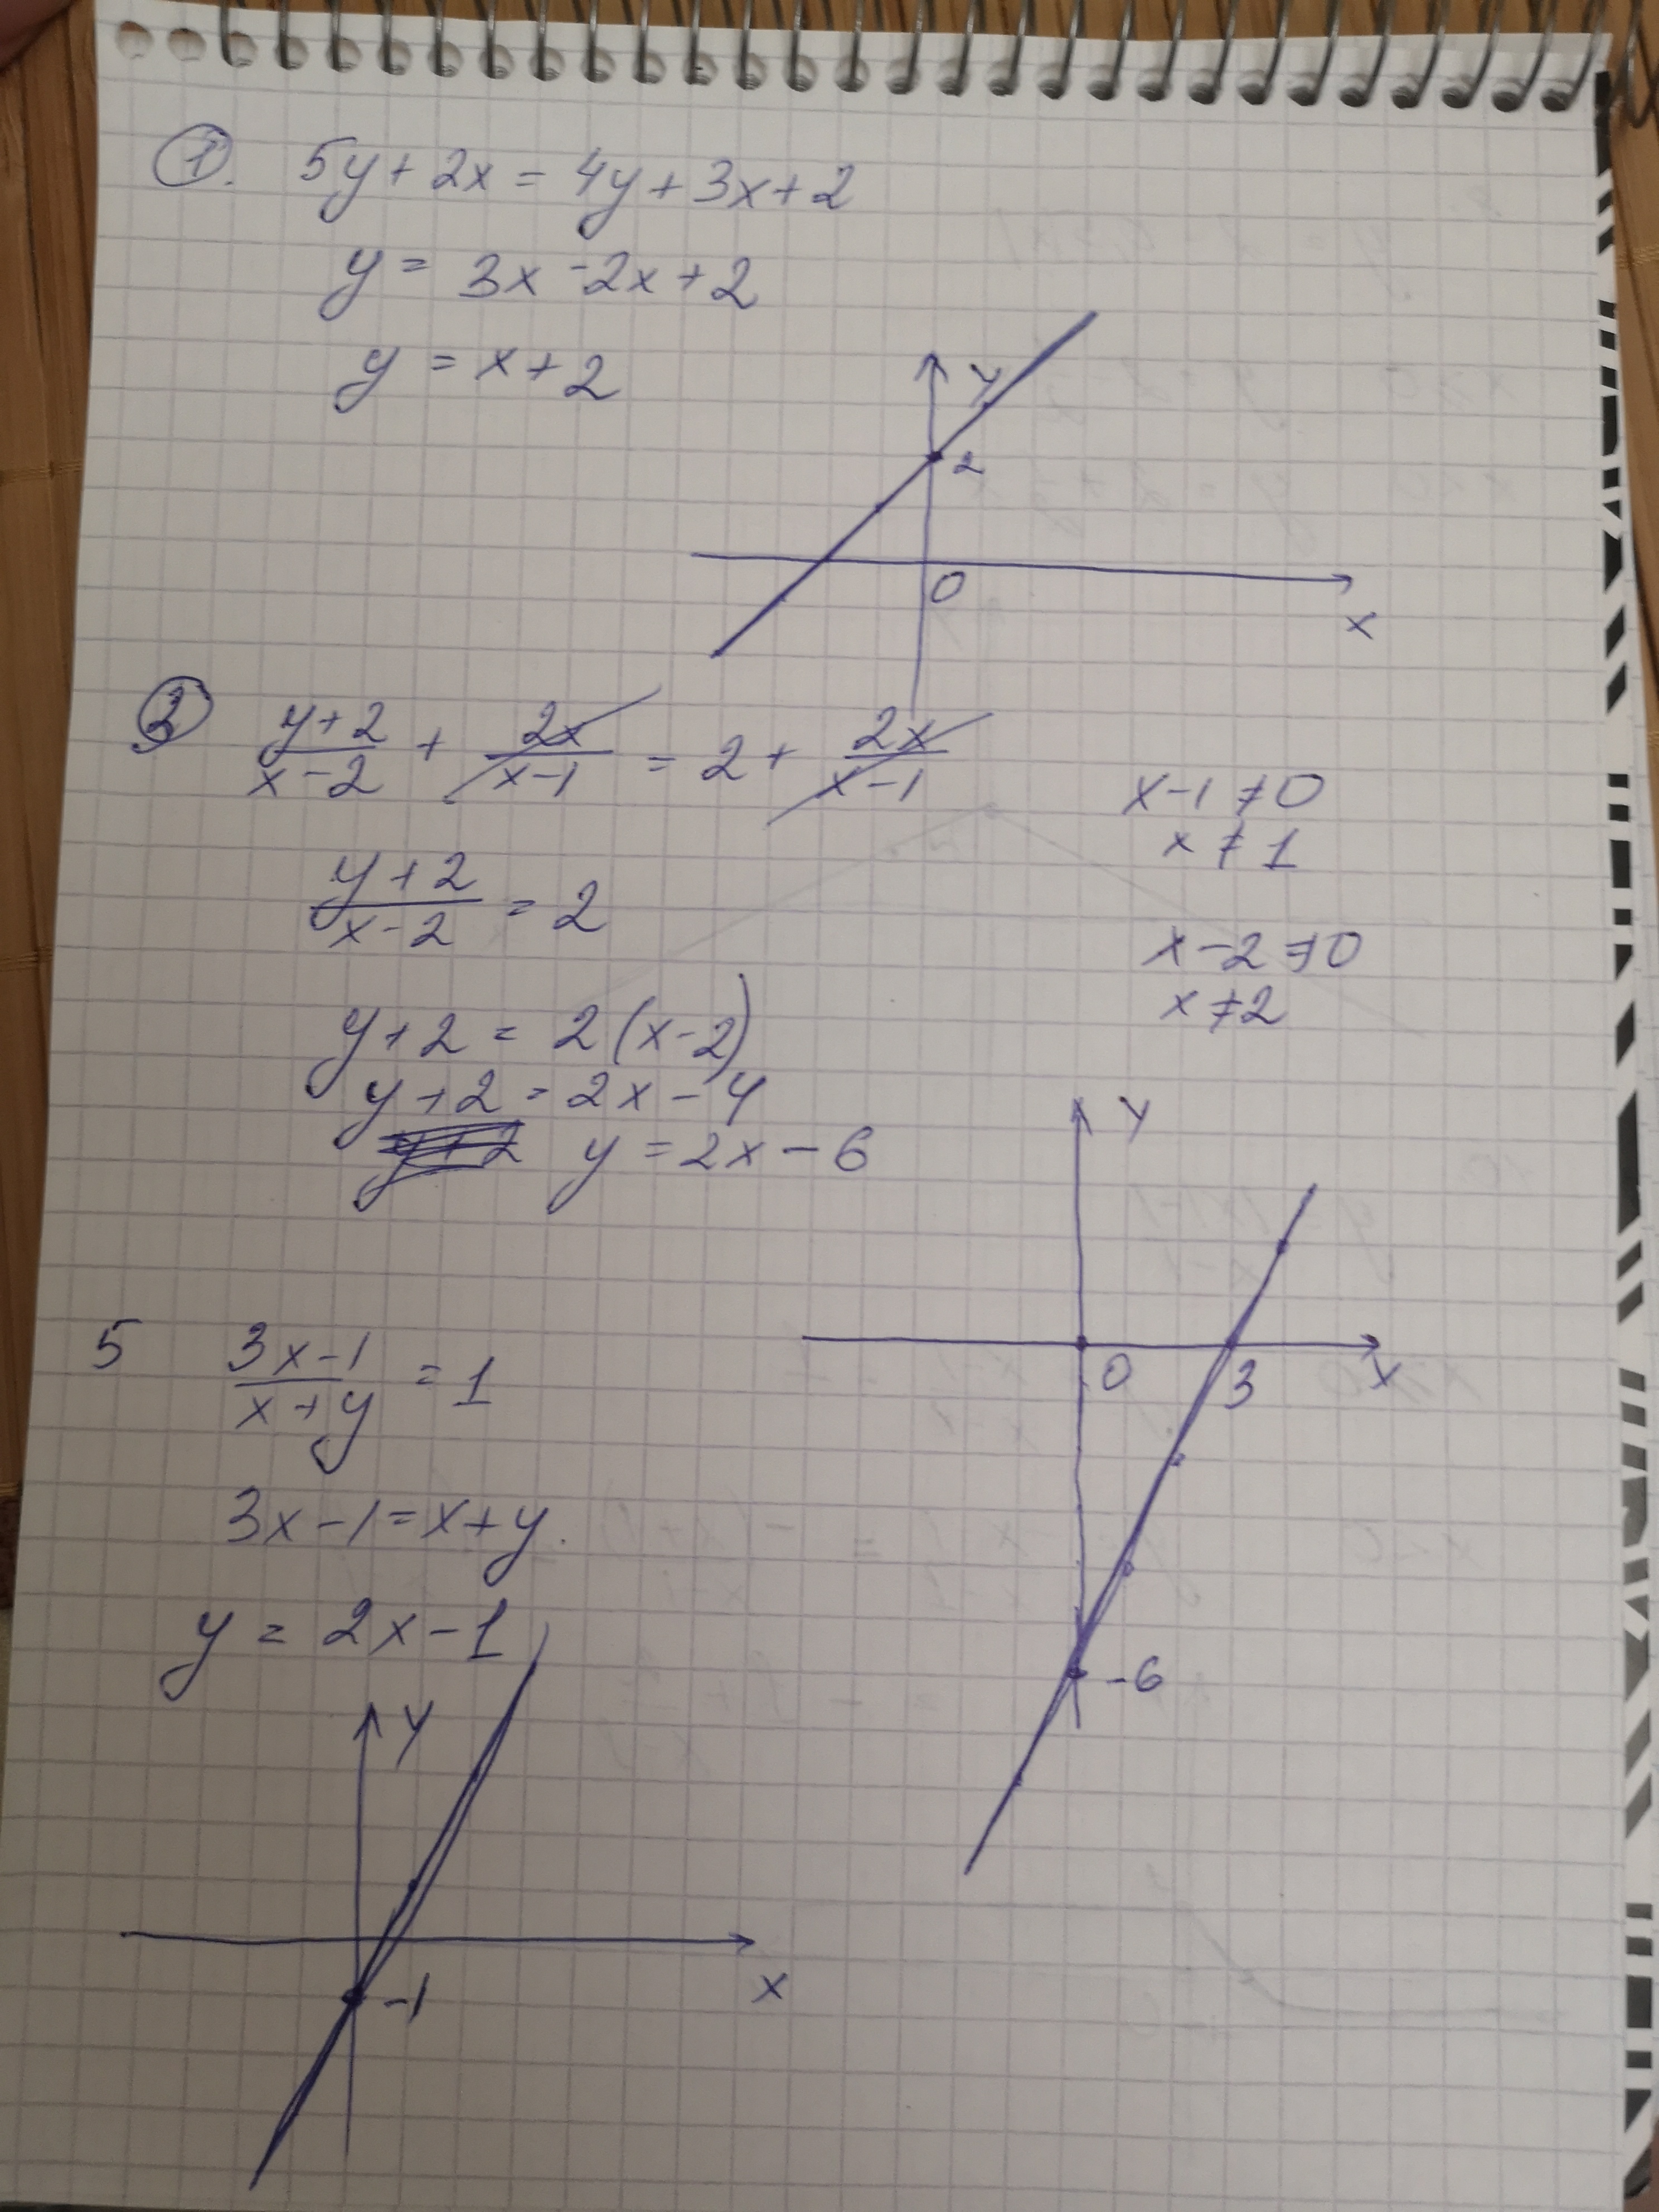 1. 5y + 2x = 4y + 3x + 2
y = 3x - 2x + 2
y = x + 2
y
2
0
x
(y+2)/(x-2) + 2x/(x-1) = 2 + 2x/(x-1)
x-1 ≠ 0
x ≠ 1
(y+2)/(x-2) = 2
x-2 ≠ 0
x ≠ 2
y+2 = 2(x-2)
y+2 = 2x-4
y+2 y = 2x-6
y
0
3
x
-6
5 (3x-1)/(x+y) = 1
3x-1 = x+y.
y = 2x-1
y
-1
x